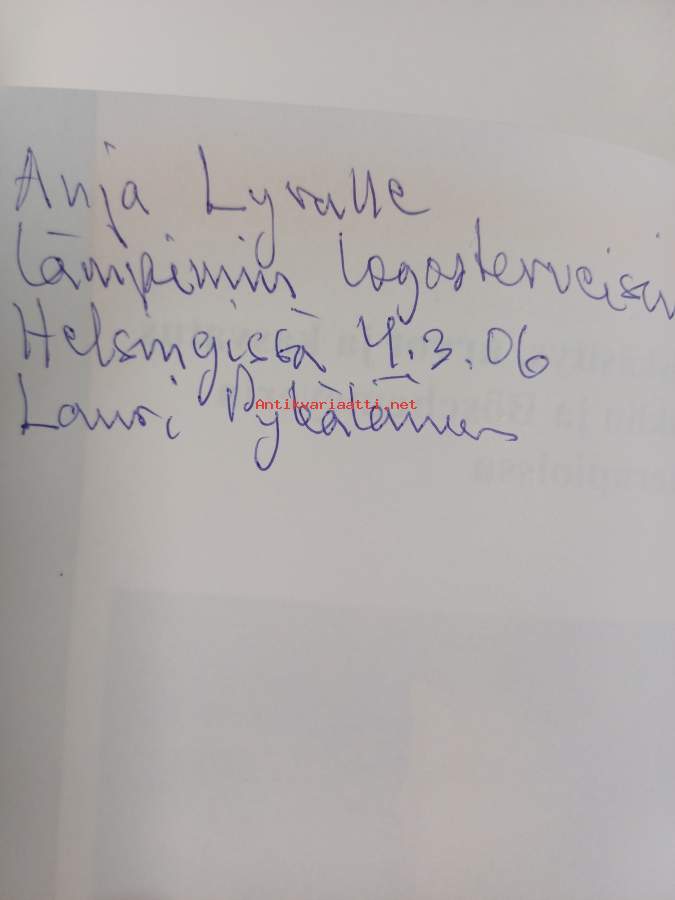 Anja Lyralle
lämpimin logosterveisin
Helsingissä 4.3.06
Antikvariaatti.net
Lauri Pykäläinen